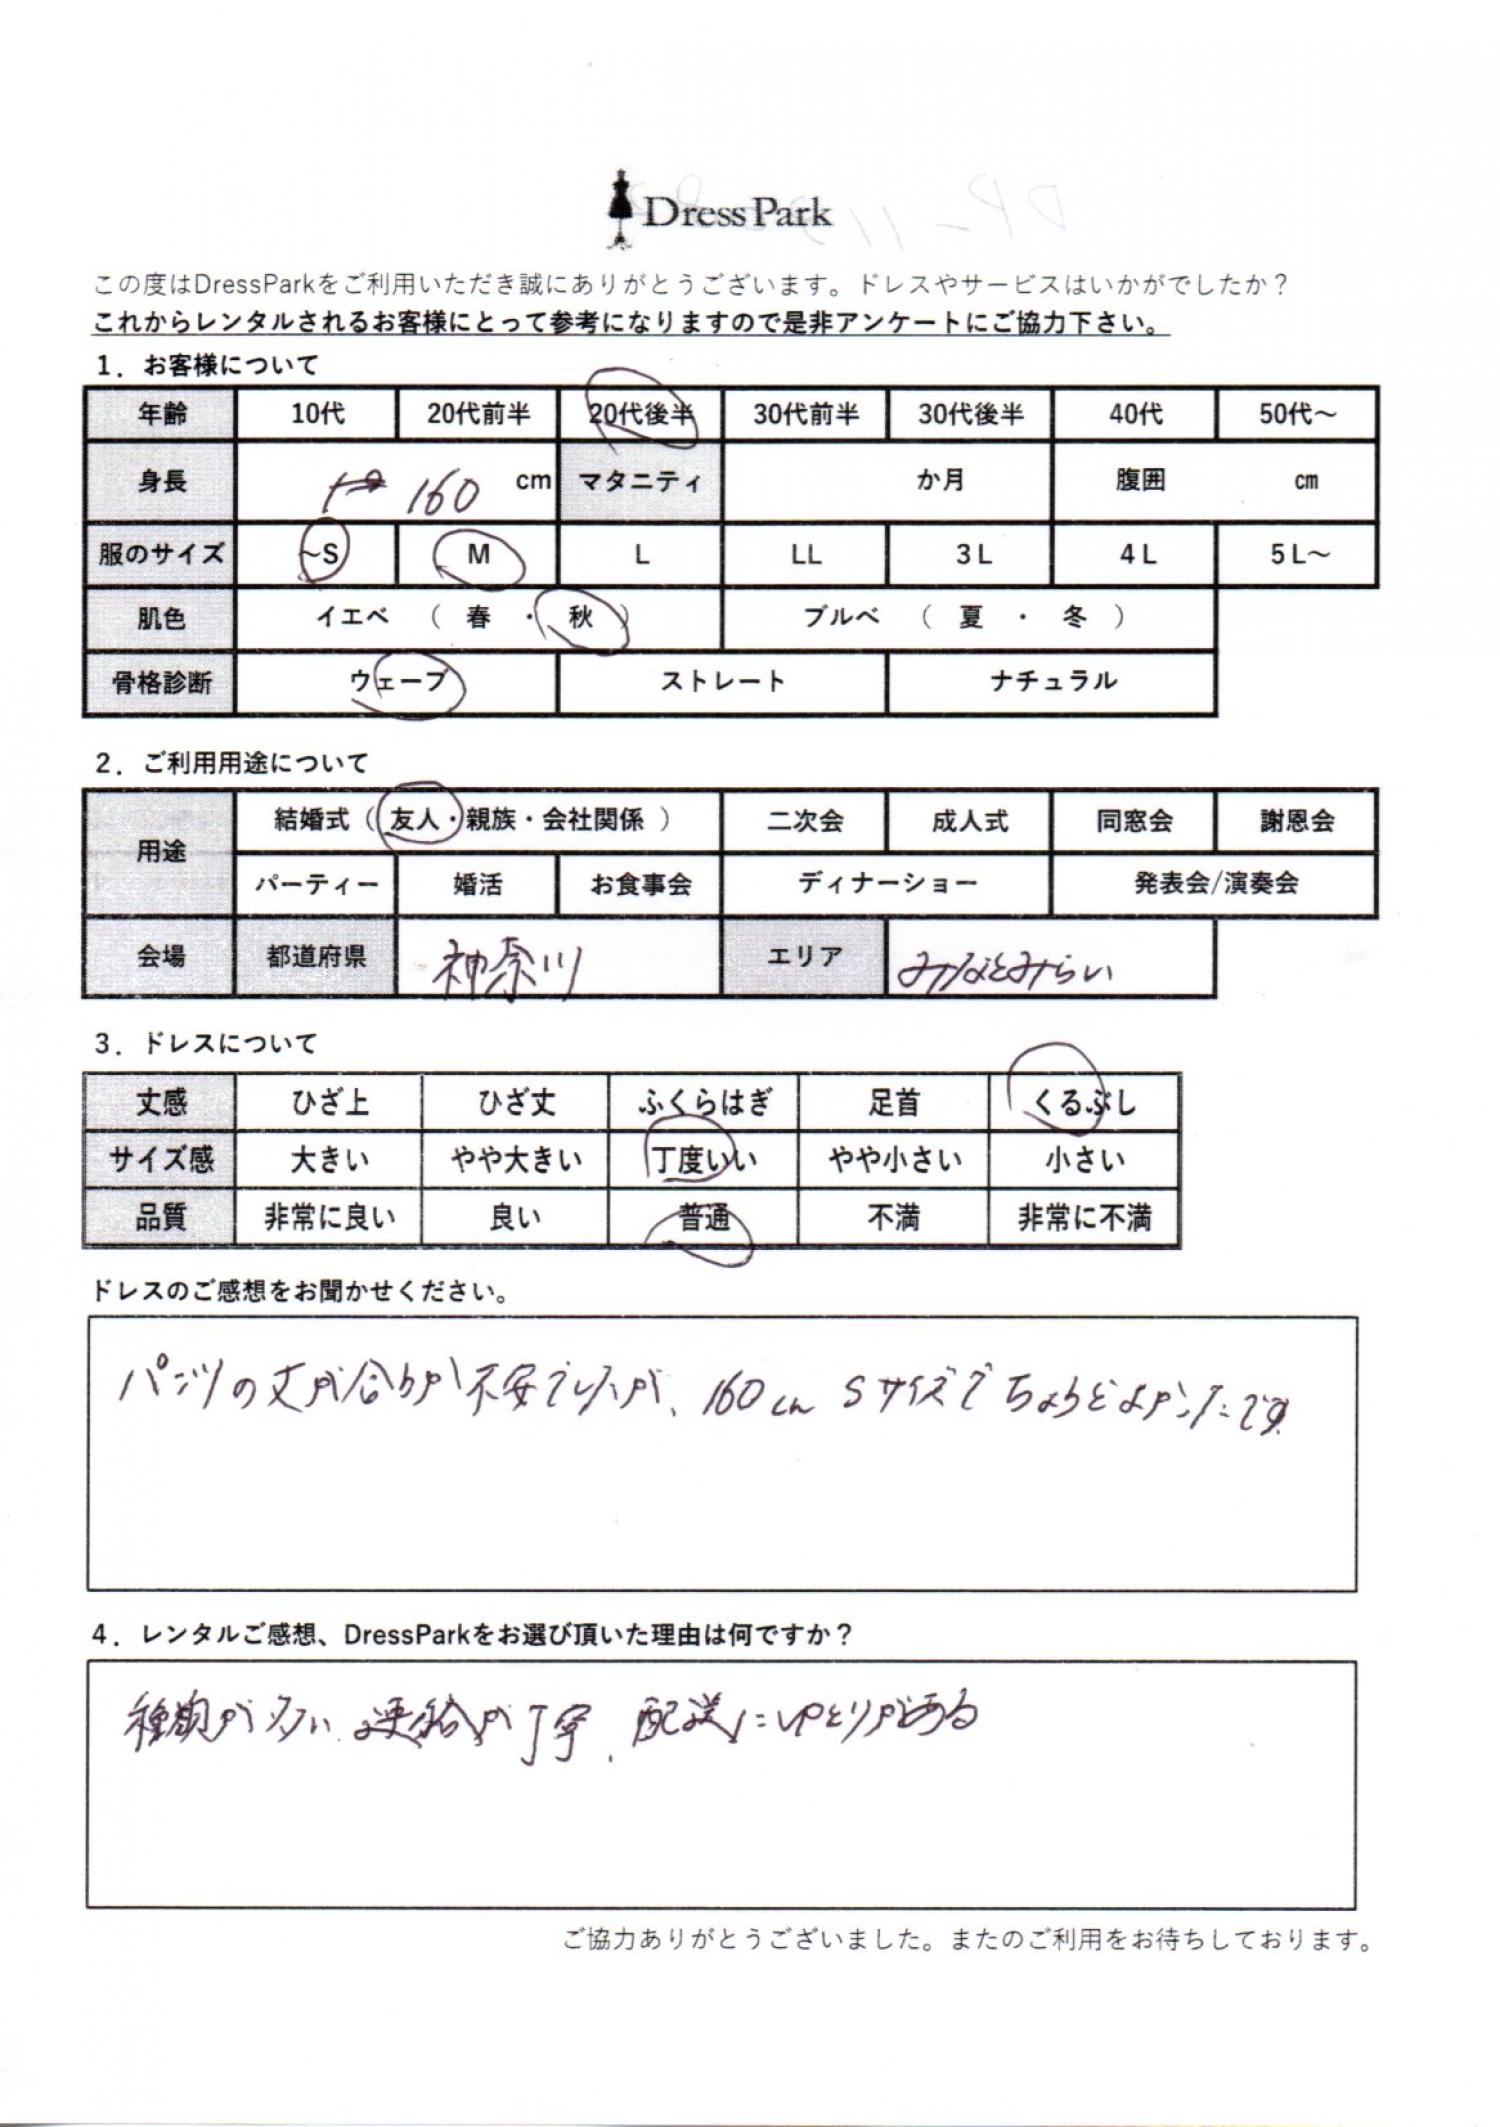 DressPark
この度はDressParkをご利用いただき誠にありがとうございます。ドレスやサービスはいかがでしたか？
これからレンタルされるお客様にとって参考になりますので是非アンケートにご協力下さい。
1．お客様について
年齢 10代 20代前半 20代後半 30代前半 30代後半 40代 50代～
身長 160 cm マタニティ か月 腹囲 cm
服のサイズ ～S M L LL 3L 4L 5L～
肌色 イエベ （ 春 ・ 秋 ） ブルベ （ 夏 ・ 冬 ）
骨格診断 ウェーブ ストレート ナチュラル
2．ご利用用途について
用途 結婚式（ 友人・親族・会社関係 ） 二次会 成人式 同窓会 謝恩会
パーティー 婚活 お食事会 ディナーショー 発表会/演奏会
会場 都道府県 神奈川 エリア みなとみらい
3．ドレスについて
丈感 ひざ上 ひざ丈 ふくらはぎ 足首 くるぶし
サイズ感 大きい やや大きい 丁度いい やや小さい 小さい
品質 非常に良い 良い 普通 不満 非常に不満
ドレスのご感想をお聞かせください。
パンツの丈が合うか不安でしたが、160cm Sサイズでちょうどよかったです
4．レンタルご感想、DressParkをお選び頂いた理由は何ですか？
種類が多い 連絡が丁寧、配送にゆとりがある
ご協力ありがとうございました。またのご利用をお待ちしております。